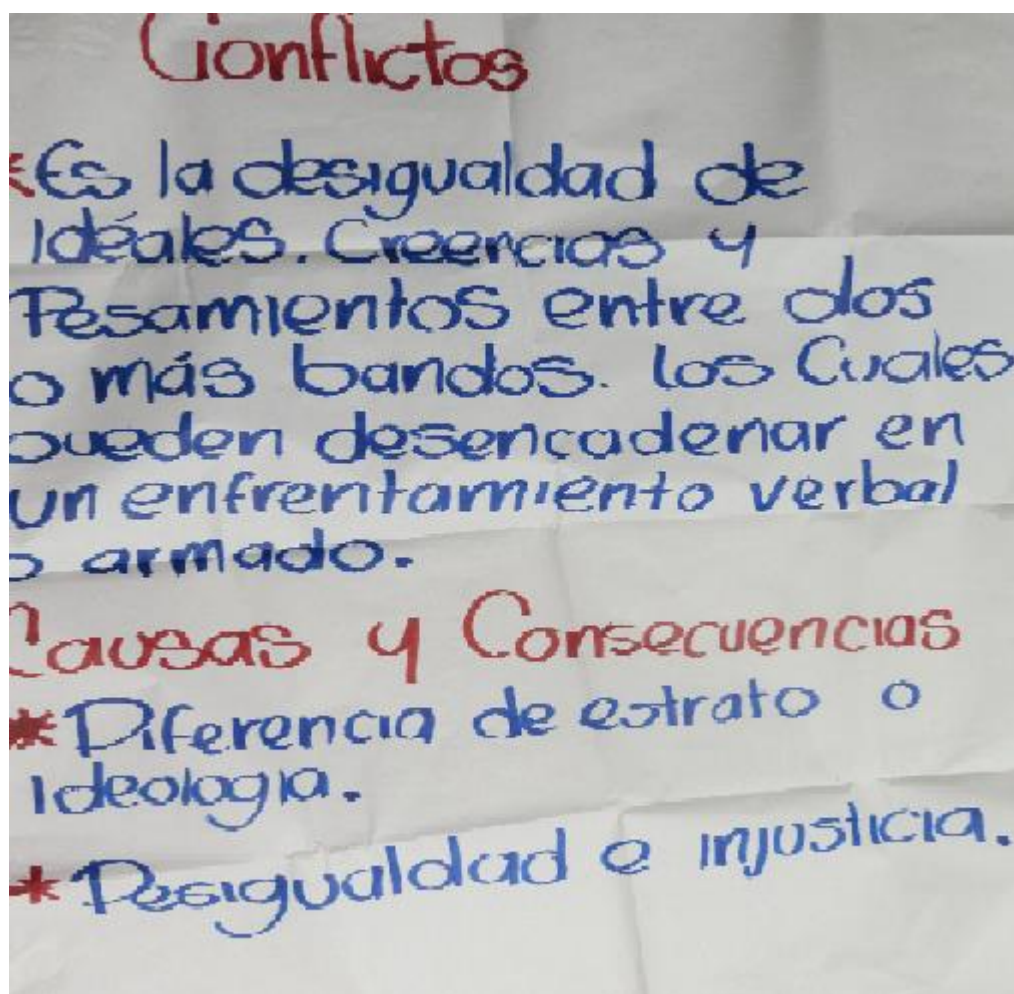 Conflictos
*Es la desigualdad de
Idéales. Creencias y
Pesamientos entre dos
o más bandos. los Cuales
pueden desencadenar en
un enfrentamiento verbal
o armado.
Causas y Consecuencias
*Diferencia de estrato o
Ideologia.
*Desigualdad e injusticia.